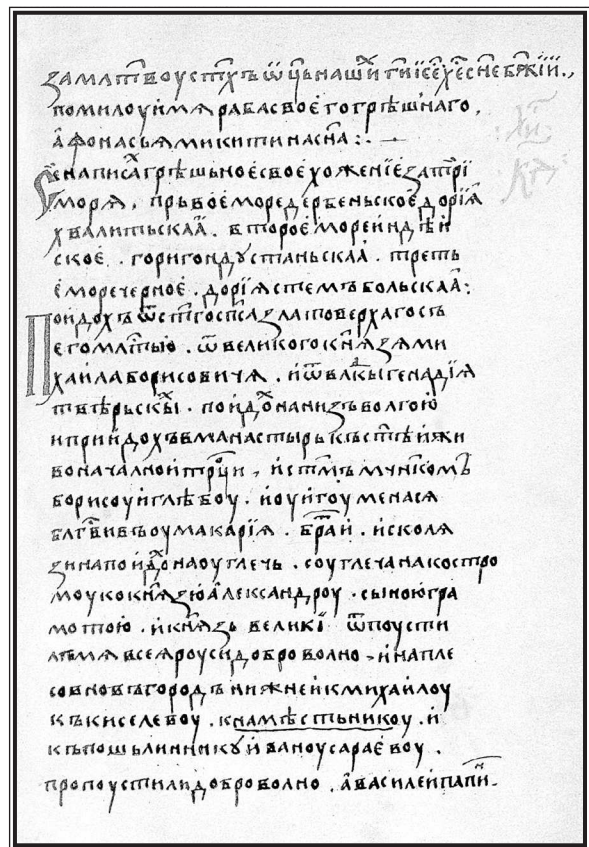 замлт҃воустх҃ъѿц҃ьнаши҃ гн҇и҇і҇се҃х҃есн҃е бж҃кїй.,
помилоуимѧрабасвоегогрѣшнаго,
аѳонасьꙗмикитинасн҃а:. —
Сенаписа҃грѣшьноесвоехоженїе затр҃ї
морѧ, прьвоемореде рбеньскоедорїѧ
хвалитьскаа. второеморейндѣй
ское. горигондꙋстаньскаа. треть
еморечерное. дорїѧстемъбольскаа:
Поидохъѿст҃госп҃сазлатоверхагосъ
егомл҃тью. ѿвеликогокн҃ѧзѧми
хаилаборисовичѧ. иѿвлⷣкыгенадїѧ
твѣрьскⷯы. поидⷯонанизъволгою
иприйдохъвманастырькъст҃ѣйжи
воначалнойтрⷪци, ист҃мъмч҃нкомъ
борисоуиглѣбоу. иоуигоуменасѧ
блг҃вивъоумакарїѧ. бр҃аи. исколѧ
зинапойдⷯонаоуглечь. соуглечанакостро
моукокн҃ѧзюалександроу. сыноюгра
мотою. икн҃ѧзь великї ѿпоусти
лъмѧвсеѧроусидоброволно, инапле
совновъгородънижнейкмихаилоу
къкиселевоу. кнамѣстьникоу. и
къпошьлинникꙋиваноусараевоу.
пропоустилидоброволно. авасилейпапиⷩ.